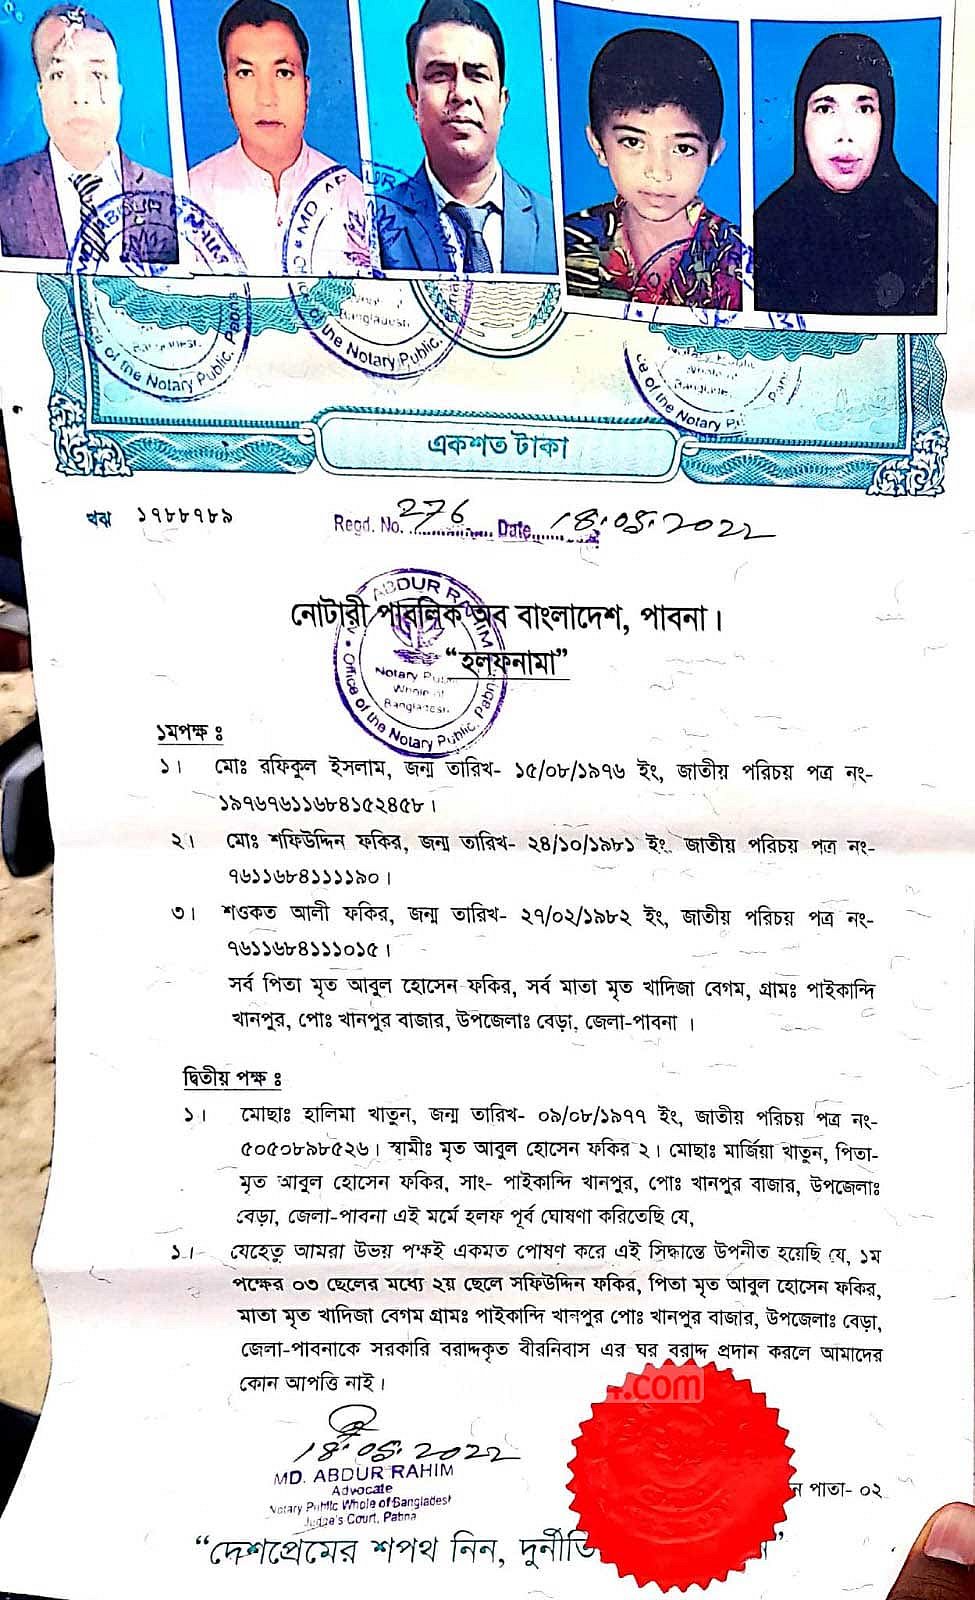 একশত টাকা
খঝ ১৭৮৮৭৮৯
Regd. No. 276 Date 18.05.2022
নোটারী পাবলিক অব বাংলাদেশ, পাবনা।
“হলফনামা”
ABDUR RAHIM
Office of the Notary Public, Pabna
Notary Public
Whole of
Bangladesh.
১মপক্ষ ঃ
১। মোঃ রফিকুল ইসলাম, জন্ম তারিখ- ১৫/০৮/১৯৭৬ ইং, জাতীয় পরিচয় পত্র নং-
১৯৭৬৭৬১১৬৮৪১৫২৪৫৮।
২। মোঃ শফিউদ্দিন ফকির, জন্ম তারিখ- ২৪/১০/১৯৮১ ইং, জাতীয় পরিচয় পত্র নং-
৭৬১১৬৮৪১১১১৯০।
৩। শওকত আলী ফকির, জন্ম তারিখ- ২৭/০২/১৯৮২ ইং, জাতীয় পরিচয় পত্র নং-
৭৬১১৬৮৪১১১০১৫।
সর্ব পিতা মৃত আবুল হোসেন ফকির, সর্ব মাতা মৃত খাদিজা বেগম, গ্রামঃ পাইকান্দি
খানপুর, পোঃ খানপুর বাজার, উপজেলাঃ বেড়া, জেলা-পাবনা ।
দ্বিতীয় পক্ষ ঃ
১। মোছাঃ হালিমা খাতুন, জন্ম তারিখ- ০৯/০৮/১৯৭৭ ইং, জাতীয় পরিচয় পত্র নং-
৫০৫০৮৯৮৫২৬। স্বামীঃ মৃত আবুল হোসেন ফকির ২। মোছাঃ মার্জিয়া খাতুন, পিতা-
মৃত আবুল হোসেন ফকির, সাং- পাইকান্দি খানপুর, পোঃ খানপুর বাজার, উপজেলাঃ
বেড়া, জেলা-পাবনা এই মর্মে হলফ পূর্ব ঘোষণা করিতেছি যে,
১। যেহেতু আমরা উভয় পক্ষই একমত পোষণ করে এই সিদ্ধান্তে উপনীত হয়েছি যে, ১ম
পক্ষের ০৩ ছেলের মধ্যে ২য় ছেলে সফিউদ্দিন ফকির, পিতা মৃত আবুল হোসেন ফকির,
মাতা মৃত খাদিজা বেগম গ্রামঃ পাইকান্দি খানপুর পোঃ খানপুর বাজার, উপজেলাঃ বেড়া,
জেলা-পাবনাকে সরকারি বরাদ্দকৃত বীরনিবাস এর ঘর বরাদ্দ প্রদান করলে আমাদের
কোন আপত্তি নাই।
18.05.2022
MD. ABDUR RAHIM
Advocate
Notary Public Whole of Bangladesh
Judge's Court, Pabna
পাতা- ০২
“দেশপ্রেমের শপথ নিন,